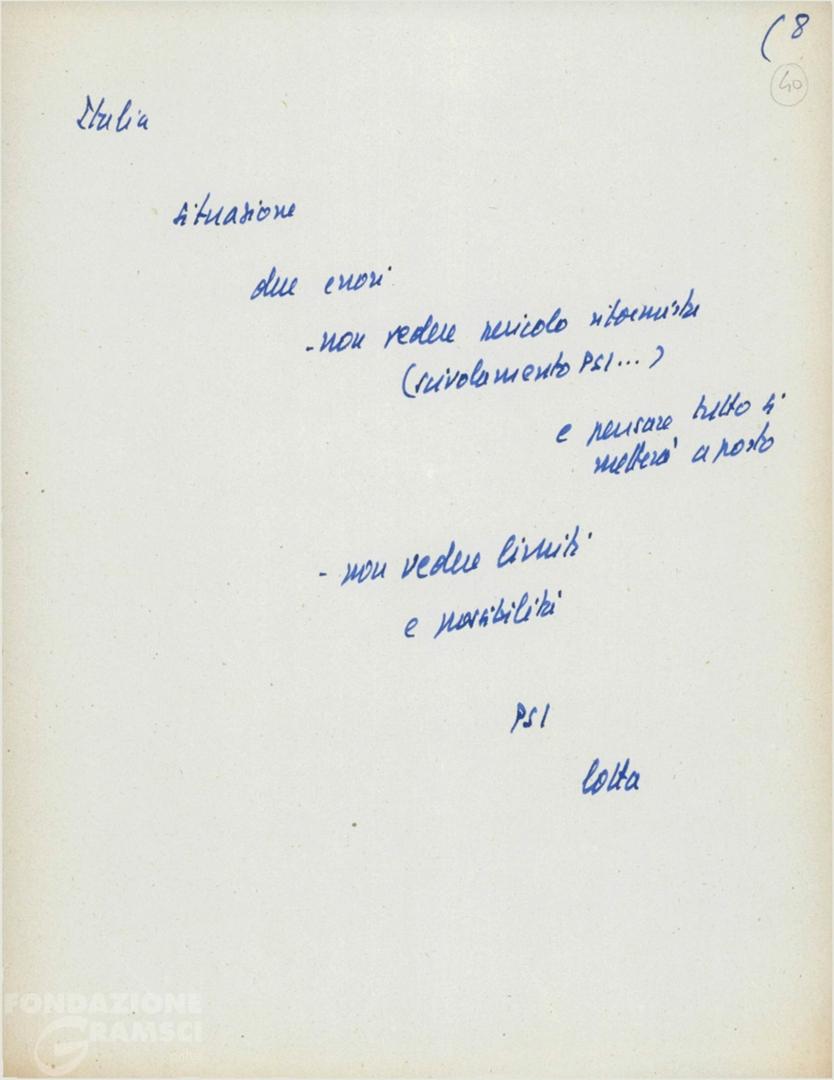 (8
40
Italia
situazione
due errori
- non vedere pericolo riformista
(scivolamento PSI...)
e pensare tutto si
metterà a posto
- non vedere limiti
e possibilità
PSI
lotta
FONDAZIONE
GRAMSCI